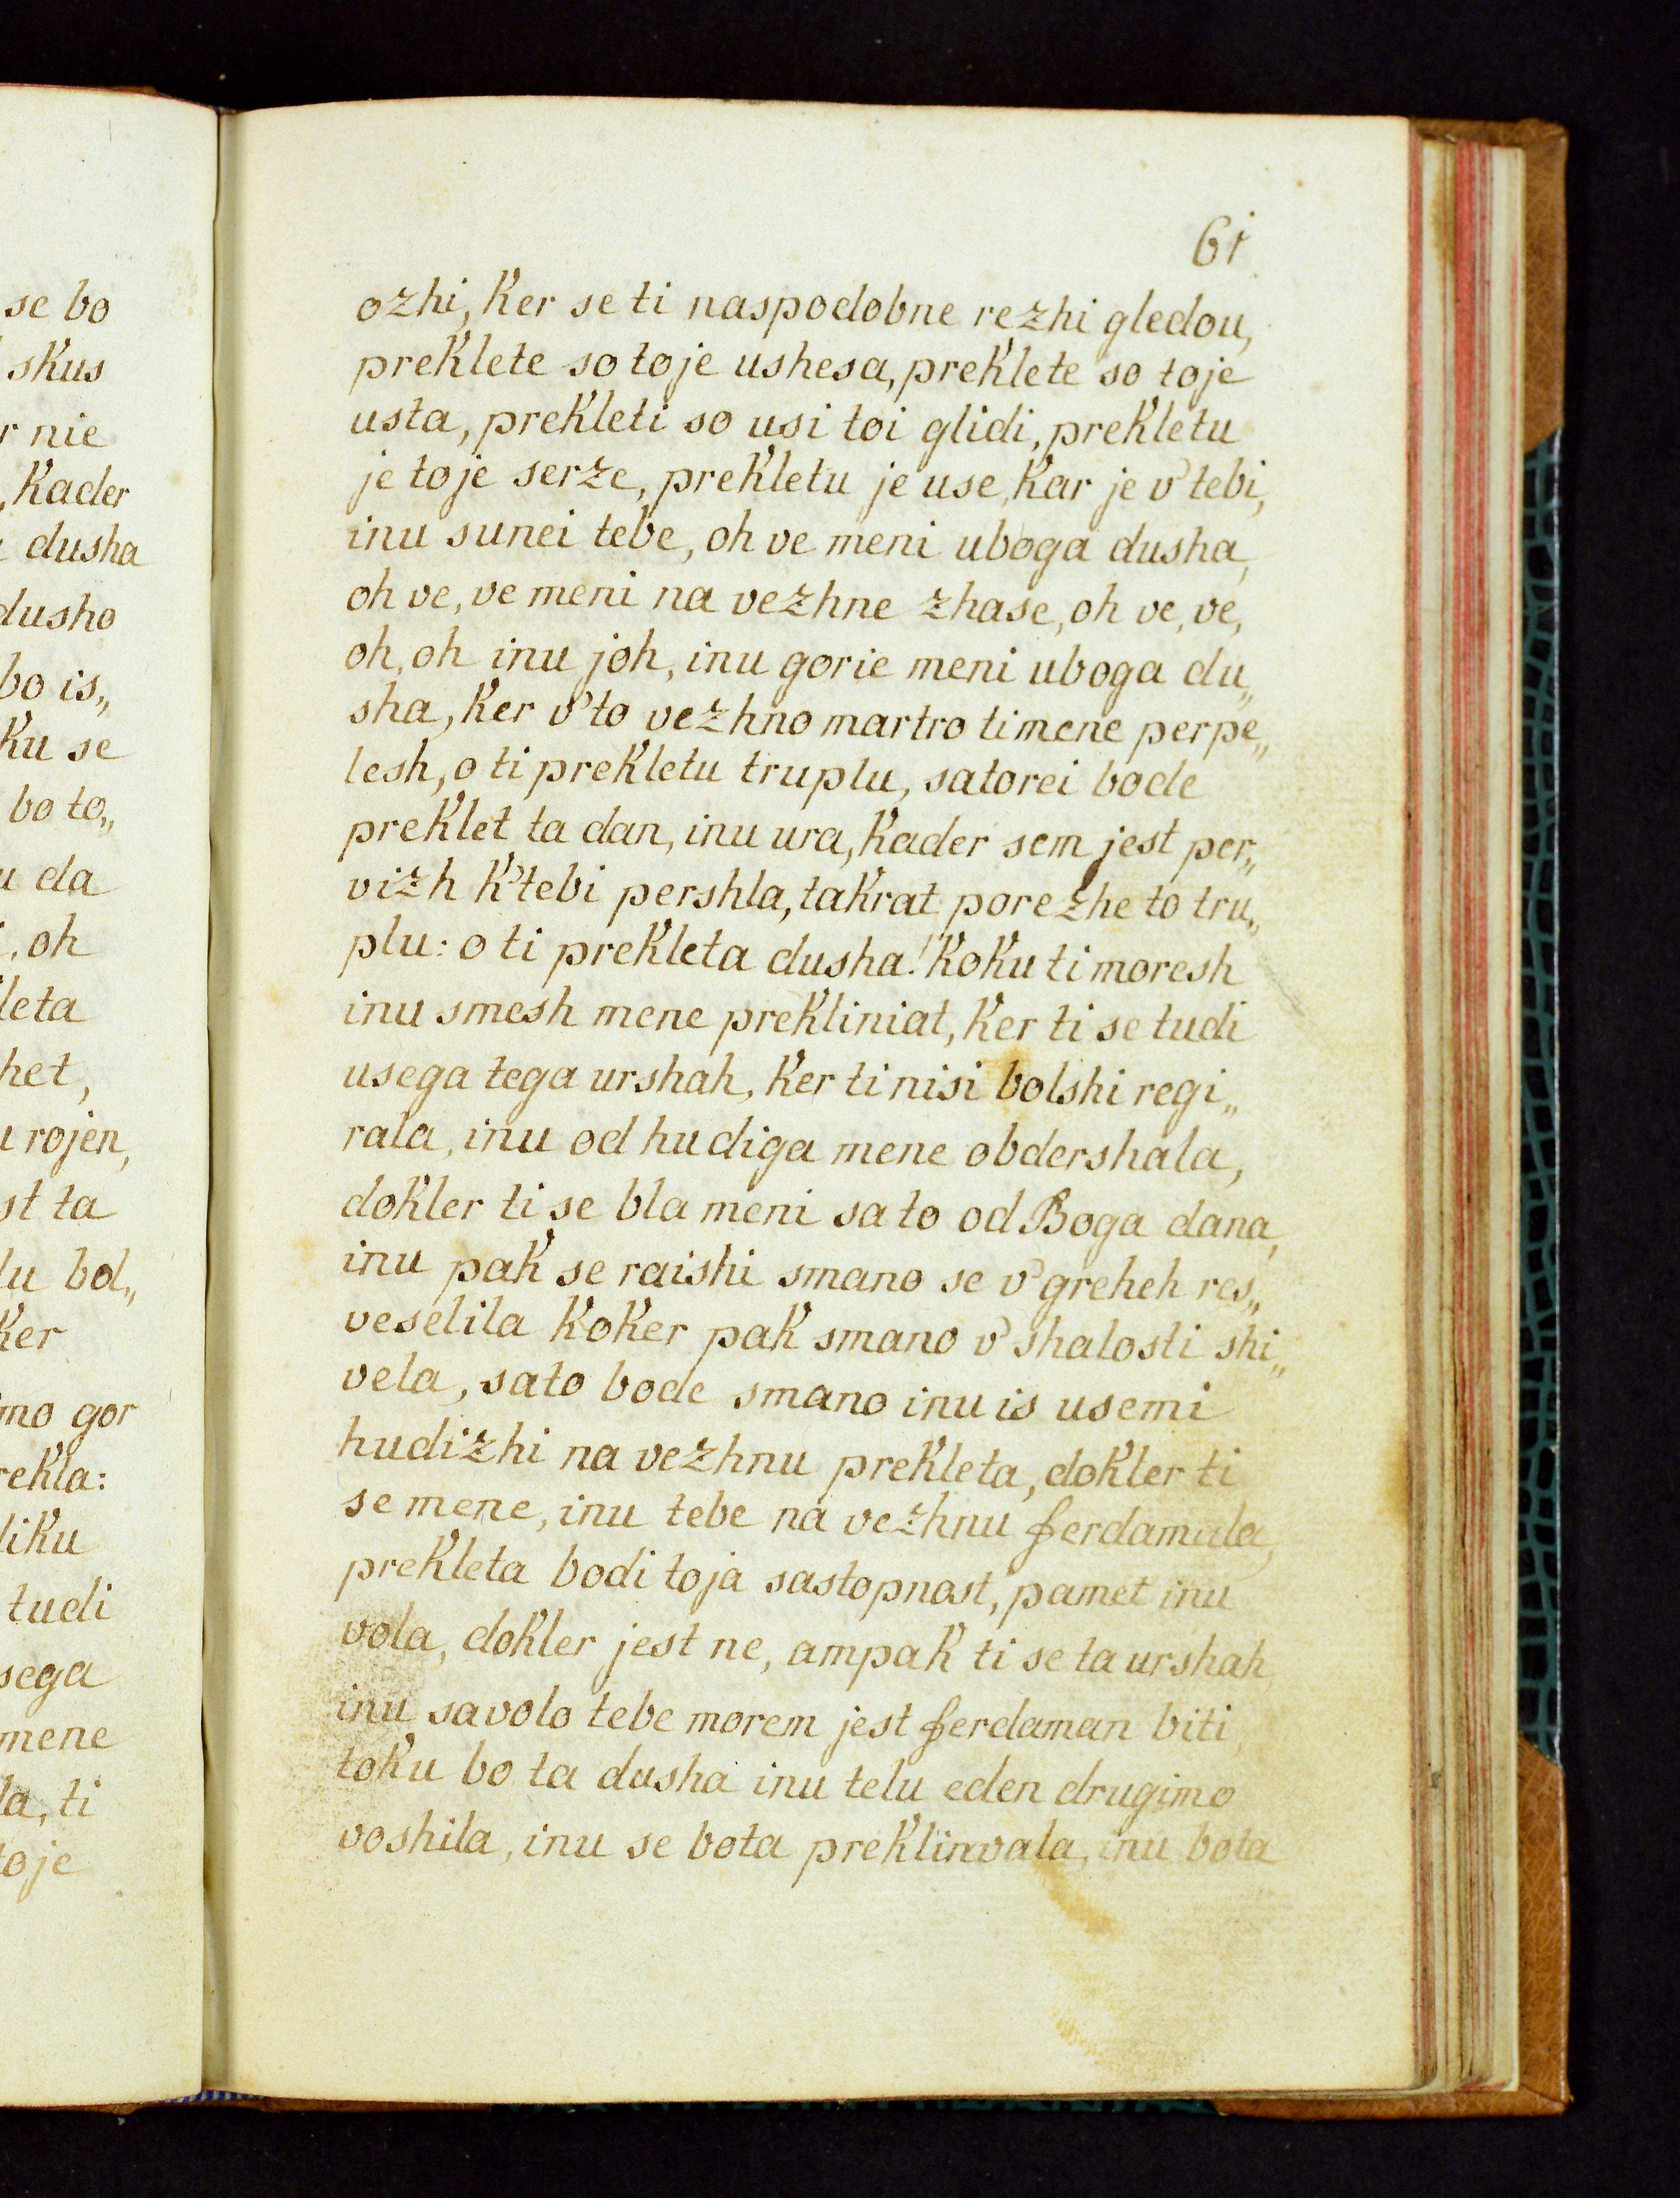 se bo
skus
r nie
, Kader
dusha
dusho
bo is„
Ku se
bo to„
u da
oh
leta
het,
u rojen,
st ta
lu bol„
Ker
mo gor
rekla:
liku
tudi
sega
mene
la, ti
toje
61
ozhi, Ker se ti naspodobne rezhi gledou,
preKlete so toje ushesa, preKlete so toje
usta, preKleti so usi toi glidi, preKletu
je toje serze, preKletu je use, Kar je v' tebi,
inu sunei tebe, oh ve meni uboga dusha,
oh ve, ve meni na vezhne zhase, oh ve, ve,
oh, oh inu joh, inu gorie meni uboga du„
sha, Ker v' to vezhno martro ti mene perpe„
lesh, o ti preKletu truplu, satorei bode
preKlet ta dan, inu ura, Kader sem jest per„
vizh K' tebi pershla, taKrat porezhe to tru„
plu: o ti preKleta dusha! KoKu ti moresh
inu smesh mene preKliniat, Ker ti se tudi
usega tega urshah, Ker ti nisi bolshi regi„
rala, inu od hudiga mene obdershala,
doKler ti se bla meni sa to od Boga dana,
inu paK se raishi smano se v' greheh res„
veselila KoKer paK smano v' shalosti shi„
vela, sato bode smano inu is usemi
hudizhi na vezhnu preKleta, doKler ti
se mene, inu tebe na vezhnu ferdamala,
preKleta bodi toja sastopnost, pamet inu
vola, doKler jest ne, ampaK ti se ta urshah
inu savolo tebe morem jest ferdaman biti
toKu bo ta dusha inu telu eden drugimo
voshila, inu se bota preKlinvala, inu bota